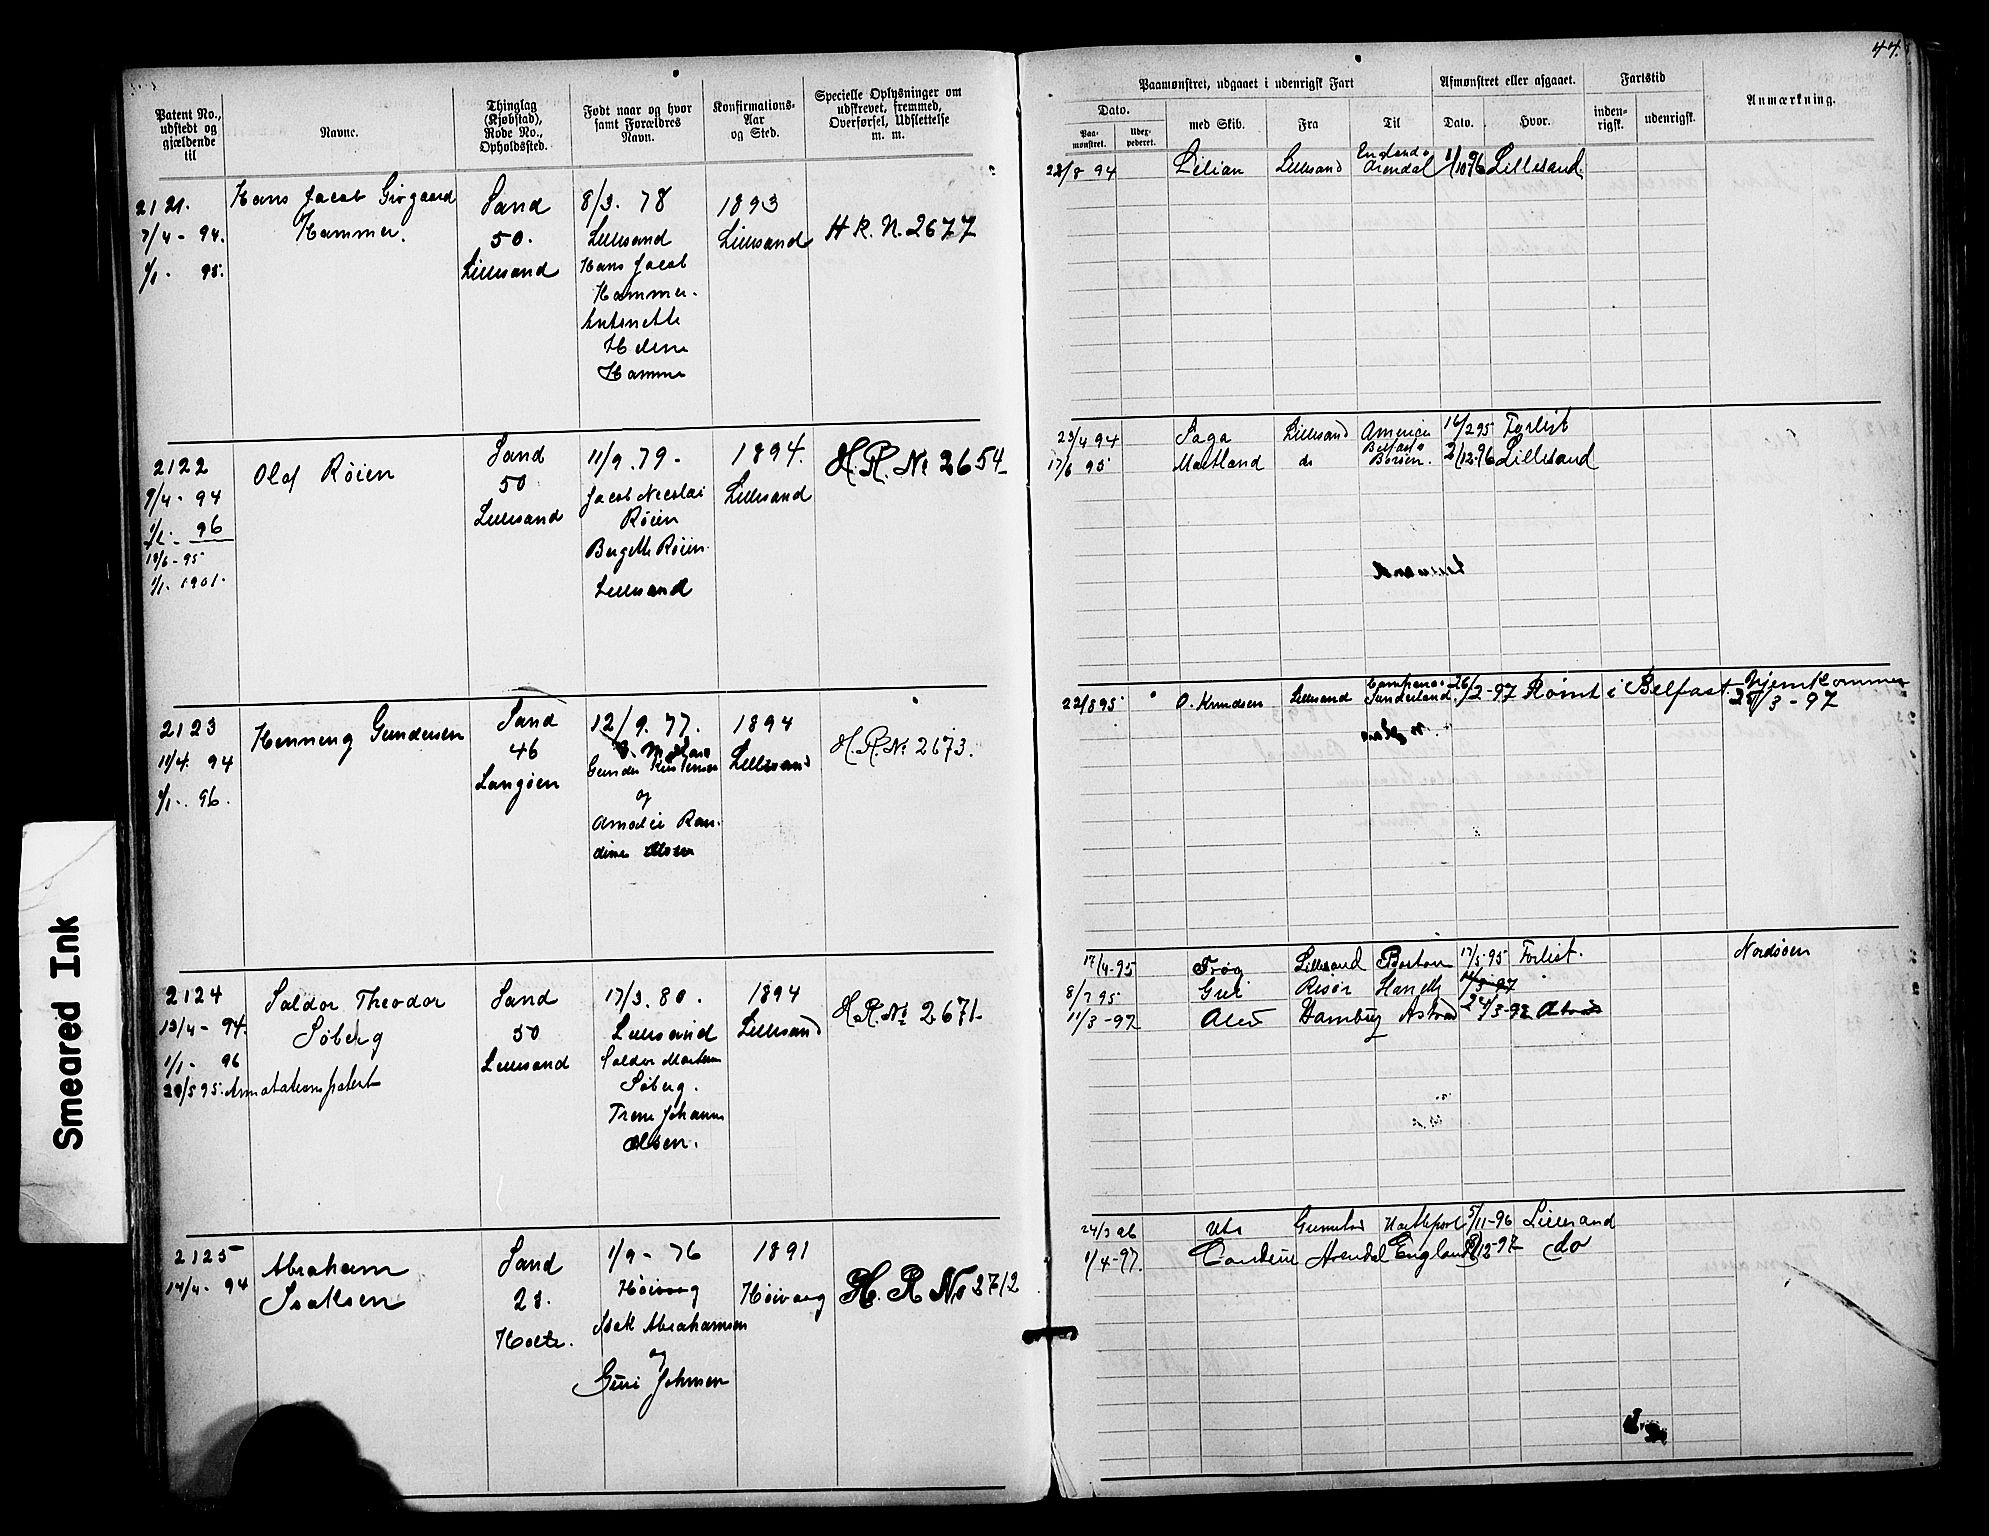 44.
Patent No., udstedt og gjældende til
Navne.
Thinglag (Kjøbstad), Rode No., Opholdssted.
Født naar og hvor samt Forældres Navn.
Konfirmations-Aar og Sted.
Specielle Oplysninger om udskrevet, fremmed, Overførsel, Udslettelse m. m.
Paamønstret, udgaaet i udenrigsk Fart
Dato.
Paa-mønstret.
med Skib.
Fra
Til
Afmønstret eller afgaaet.
Dato.
Hvor.
Fartstid
inden-rigsk.
udenrigsk.
Anmærkning.
2121.
7/4 - 94.
1/1 - 95.
Hans Jacob
Hammer.
Sand
50.
Lillesand
8/3. 78
Lillesand
Hans Jacob
Hammer.
Antonette
Helene
Hamme
1893
Lillesand
H R. N. 2677
28/8 94 Lilian Lillesand England Arendal 1/10 96 Lillesand
2122
9/4 - 94
96
18/6 - 95
1/1. 1901.
Olaf Röien
Sand
50
Lillesand
11/9. 79 -
Jacob Nicolai
Röien
Bergitte Röien
Lillesand
1894.
Lillesand
H. R. No 2654
23/4 94 Saga Lillesand America 14/2 95 Forlist
17/6 95 Maitland do 2/12-96 Lillesand
2123
11/4. 94
1/1 - 96.
Henning Gundersen
Sand
46
Langöen
12/9. 77.
og
dine Olsen
1894
Lillesand
H. R. No 2673.
22/8 95 O. Knudsen Lillesand Sunderland 26/2-97 Römt i Belfast. Hjemkommen
25/3 - 97
2124
13/4 - 94.
1/1 - 96
20/5 95. Annotationspatent
Saldor Theodor
Söberg
Sand
50
Lillesand
17/3. 80.
Lillesand
Saldor
Söberg.
Johanne
Olsen.
1894
Lillesand
H. R. No 2671-
17/4-95 Lillesand Boston 17/5 95 Forlist. Nordsöen
8/7 95 Risör
11/3-97 Hamburg 24/3-97
2125
14/4 - 94
Abraham
Isaksen
Sand
28.
Holte.
1/9 - 76
Höivaag
Isak Abrahamsen
og
Guri Johnsen
1891
Höivaag
H. R No 2712
24/3 96 Hartlepool 5/11-96 Lillesand
1/4-97. Arendal England 12-97 do
Smeared Ink